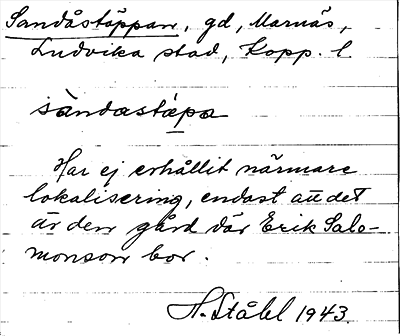 Sandåstäppan, gd, Marnäs,
Ludvika stad, Kopp. l
sàndastä̀pa
Har ej erhållit närmare
lokalisering, endast att det
är den gård där Erik Salo-
monson bor.
H. Ståhl 1943.